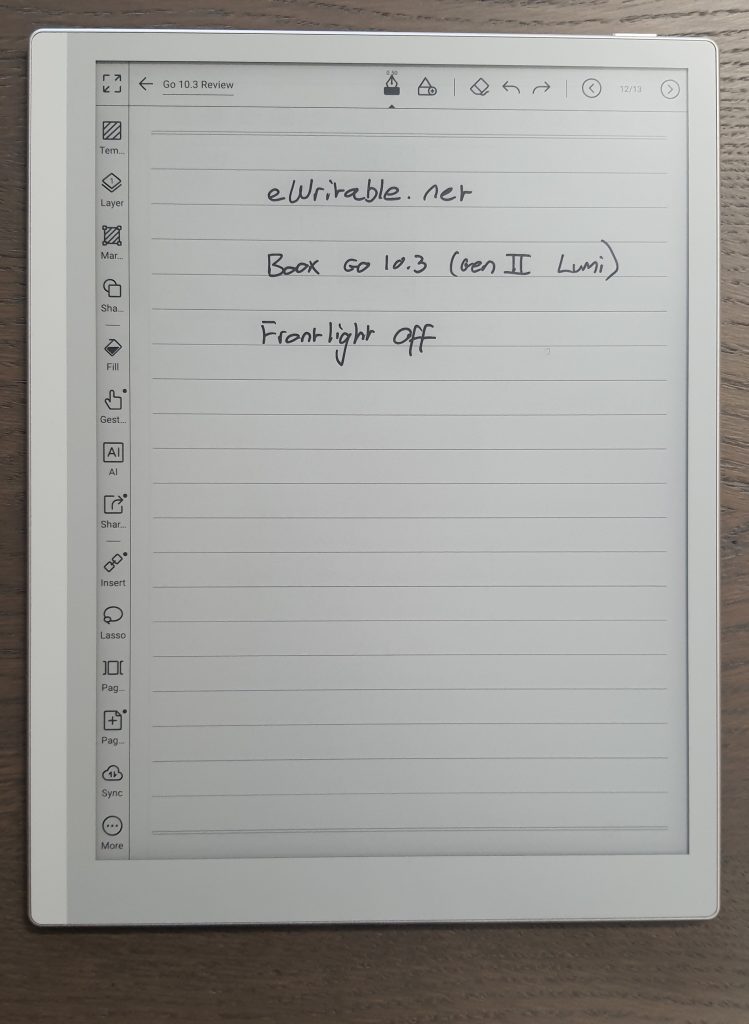 Go 10.3 Review
0.50
12/13
Tem...
Layer
Mar...
Sha...
Fill
Gest...
AI
AI
Shar...
Insert
Lasso
Pag...
Pag...
Sync
More
eWritable.net
Boox Go 10.3 (Gen II Lumi)
Frontlight Off